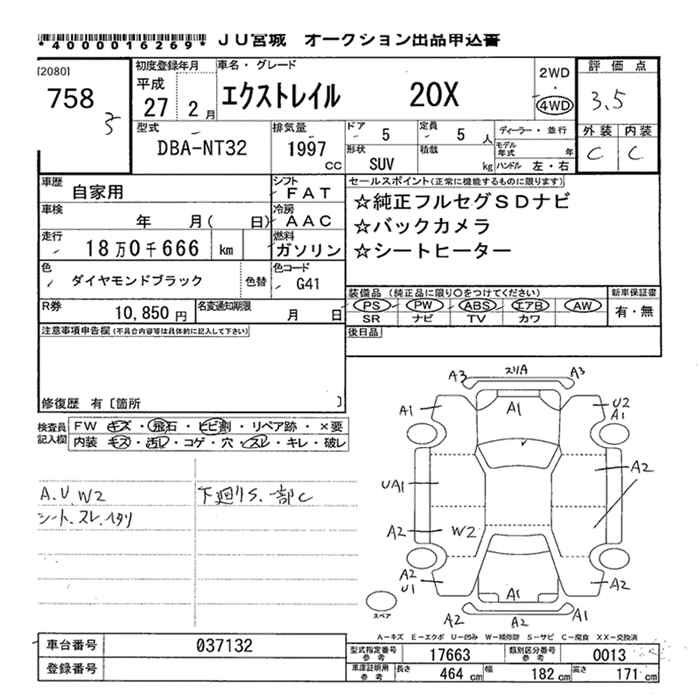 *4000016269* JU宮城 オークション出品申込書
[2080]
758
3
初度登録年月
平成
27 2月
車名・グレード
エクストレイル 20X
2WD
・
4WD
評価点
3.5
外装 内装
C C
型式
DBA-NT32
排気量
1997
CC
ドア 5
定員 5 人
ディーラー・並行
形状
SUV
積載
kg
モデル年式 年
ハンドル 左・右
車歴
自家用
シフト
FAT
セールスポイント(正常に機能するものに限ります)
☆純正フルセグSDナビ
☆バックカメラ
☆シートヒーター
車検
年 月( 日)
冷房
AAC
走行
18万0千666 km
燃料
ガソリン
色
ダイヤモンドブラック
色替
色コード
G41
装備品 (純正品に限り○をつけてください)
PS PW ABS エアB AW
SR ナビ TV カワ
新車保証書
有・無
R券
10,850円
名変通知期限
月 日
後日品
注意事項申告欄(不具合内容等は具体的に記入して下さい)
修復歴 有〔箇所 〕
検査員記入欄
FW キズ・飛石・ヒビ割・リペア跡・×要
内装 キズ・汚レ・コゲ・穴・スレ・キレ・破レ
A.U.W2
シート.スレ.ヘタリ
下廻りS.一部C
A3 スリA A3
A1 A1 U2
A1
UA1 A2
A2 W2
A2
U1 A2
A1 A2 A1
スペア
A−キズ E−エクボ U−凹み W−補修跡 S−サビ C−腐食 XX−交換済
車台番号 037132
登録番号
型式指定番号参考 17663
類別区分番号参考 0013
車庫証明用参考 長さ 464cm 幅 182cm 高さ 171cm